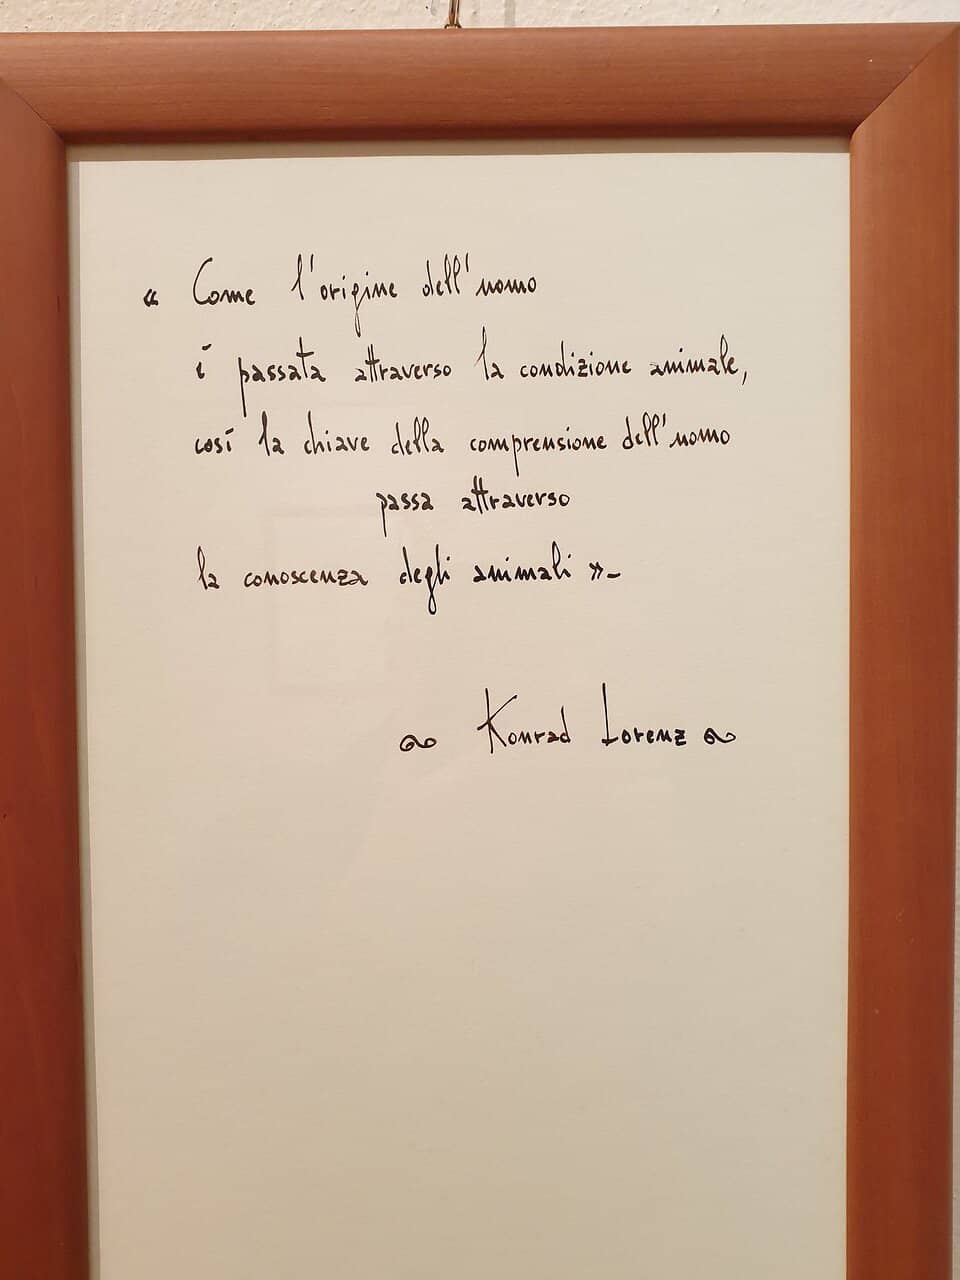 « Come l'origine dell'uomo
è passata attraverso la condizione animale,
così la chiave della comprensione dell'uomo
passa attraverso
la conoscenza degli animali »-
Konrad Lorenz